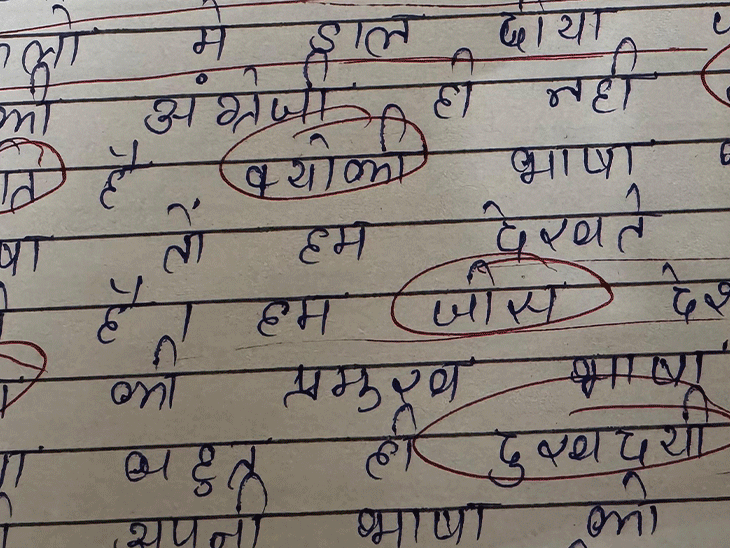 में डाल दीया
की अंग्रेजी ही नही
है क्योकी भाषा
तों हम देखते
है । हम जीस
की प्रमुख भाषा
बहुत ही दुखदयी
अपनी भाषा को